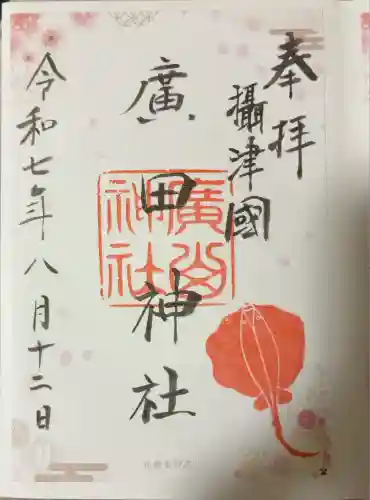 奉拝
攝津國
廣田神社
令和七年八月十二日